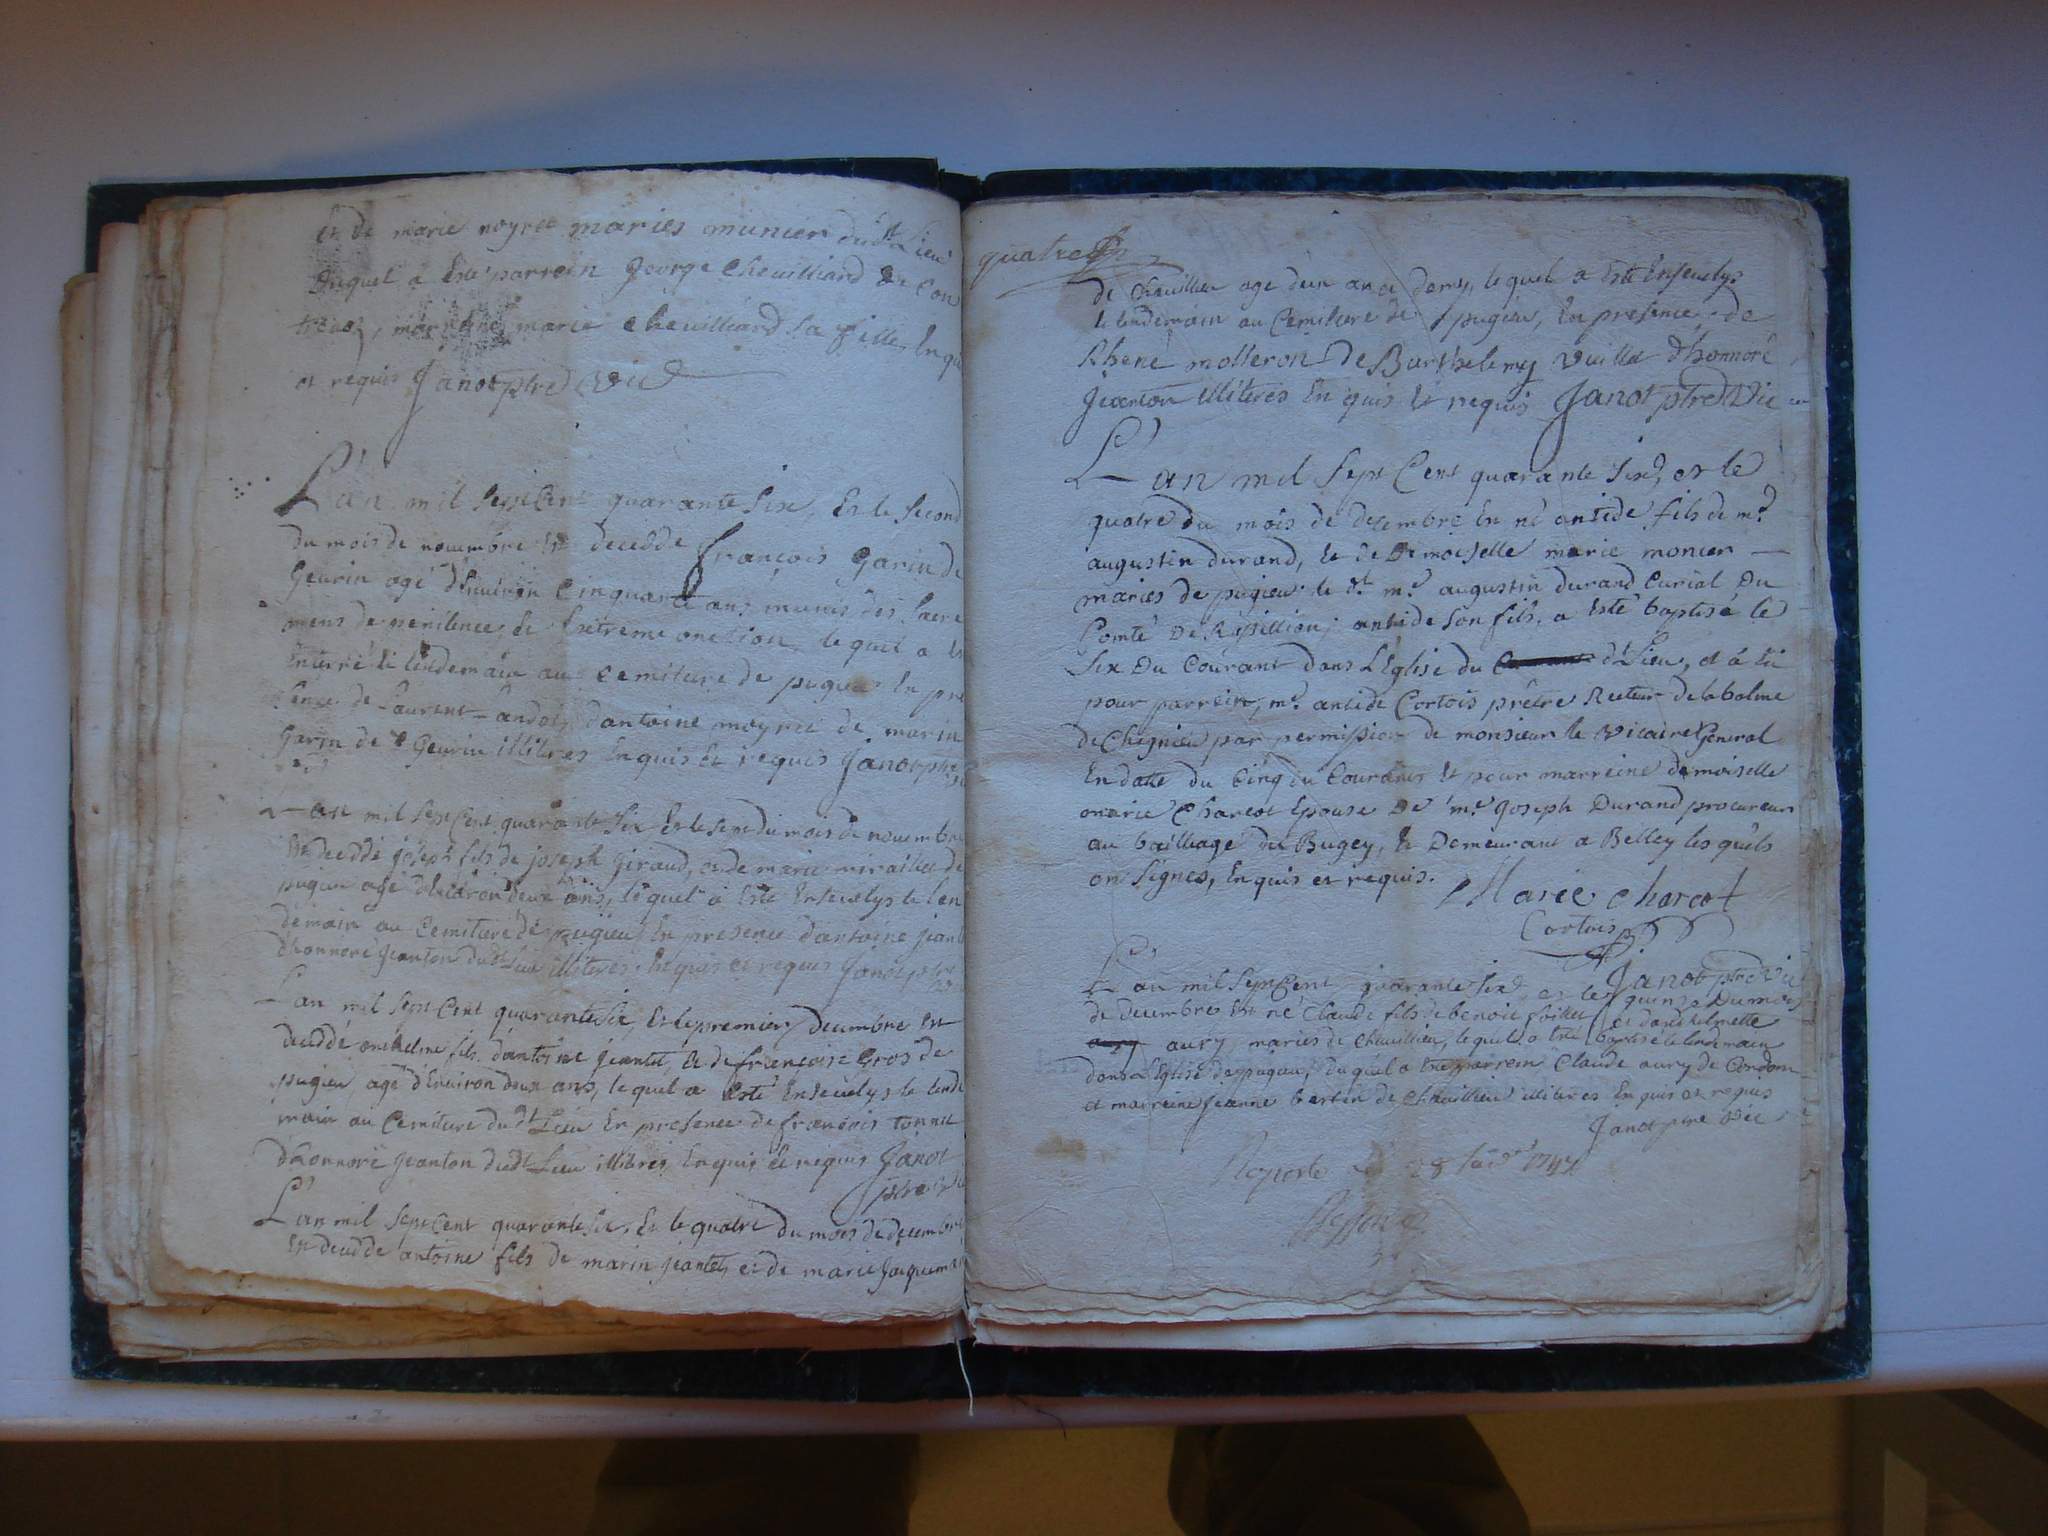 et de marie noyret maries munier dudt Lieu
duquel a esté parrein george chevilliard de Con
marreine marie chevilliard sa fille Enqu
et requis Janot ptre Vic
L'an mil sept Cent quarante six, Et le second
du mois de novembre Est decedde françois Garin de
Geurin agé d'Environ Cinquante ans munis des sacre
mens de penitence, de Extreme onction, le quel a Es
Enterré le lendemain au Cemitiere de pugieu En pre
sence de Laurent andois d'antoine moyret de marin
Garin de Geurin illitres Enquis Et requis Janot ptre
Vic
L'an mil sept Cent quarante six Et le sept du mois de novembre
Est decedde joseph fils de joseph giraud, et de marie miraillet de
pugieu agé d'Environ deux ans, le quel a Esté Ensevelys le len
demain au Cemitiere de pugieu En presence d'antoine jeant
d'honnoré jeanton dudt Lieu illitres, Enquis et requis Janot ptre
L'an mil sept Cent quarante six, Et le premier decembre Est
decedde anthelme fils d'antoine jeantet, et de françoise Gros de
pugieu, agé d'Environ deux ans, le quel a Esté Ensevelys le lende
main au Cemitiere du dt Lieu En presence de françois tonnet
d'honnoré jeanton dudt Lieu illitres, Enquis et requis Janot
ptre Vic
L'an mil sept Cent quarante six, Et le quatre du mois de decembre
Est decedde antoine fils de marin jeantet, et de marie Jacquem
quatre
de Chevillieu agé d'un an et demy, le quel a Esté Ensevelys
le lendemain au Cemitiere de pugieu, En presence de
Rhené molleron de Barthelemy Vuillet d'honnoré
jeanton illitres En quis Et requis Janot ptre Vic
L'an mil sept Cent quarante six, et le
quatre du mois de decembre Est né antide fils de mr
augustin durand, et de Demoiselle marie monier
maries de pugieu le dt mr augustin durand Curial Du
Comté De Rossillion; antide son fils a Esté baptisé le
six Du Courant dans L'Eglise du dt Lieu, et a Eu
pour parrein, mr antide Cortois prêtre Recteur de la balme
de Chignieu par permission de monsieur le Vicaire General
En datte du Cinq du Courant Et pour marreine demoiselle
marie Charcot Epouse De mr Joseph Durand procureur
au bailliage du Bugey, Et Demeurant a Belley les quels
on signes, Enquis et requis.
Marie charcot
Cortois
Janot ptre Vic
L'an mil sept Cent quarante six, et le quinze Du mois
de decembre Est né Claude fils de benoit et d'anthelmette
aury maries de Chevillieu, le quel a Esté baptisé le lendemain
dans L'Eglise de pugieu, du quel a Esté parrein Claude aury de Cordon
et marreine jeanne bertin de Chevillieu illitres Enquis et requis
Janot ptre Vic
Reporté 28